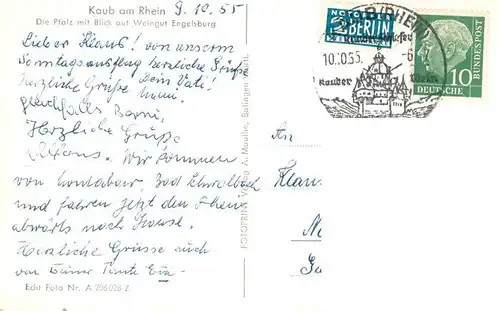 Kaub am Rhein 9.10.55
Die Pfalz mit Blick auf Weingut Engelsburg
Lieber Klaus! von unserm
Sonntagsausflug herzliche Grüße
herzliche Grüße Dein Vati!
gleichfalls
Herzliche Grüße
Wir kommen
von Montabaur, Bad Schwalbach
und fahren jetzt den Rhein
abwärts nach Hause.
Herzliche Grüsse auch
von Deiner Tante
Echt Foto Nr. A 206028 Z
FOTOPRINT Verlag A. Mauthe, Balingen
NOTOPFER
2 BERLIN
STEUERMARKE
KAUB (RHEIN)
10.10.55.
-6
Kauber
Wein
10
DEUTSCHE
BUNDESPOST
An
Klau